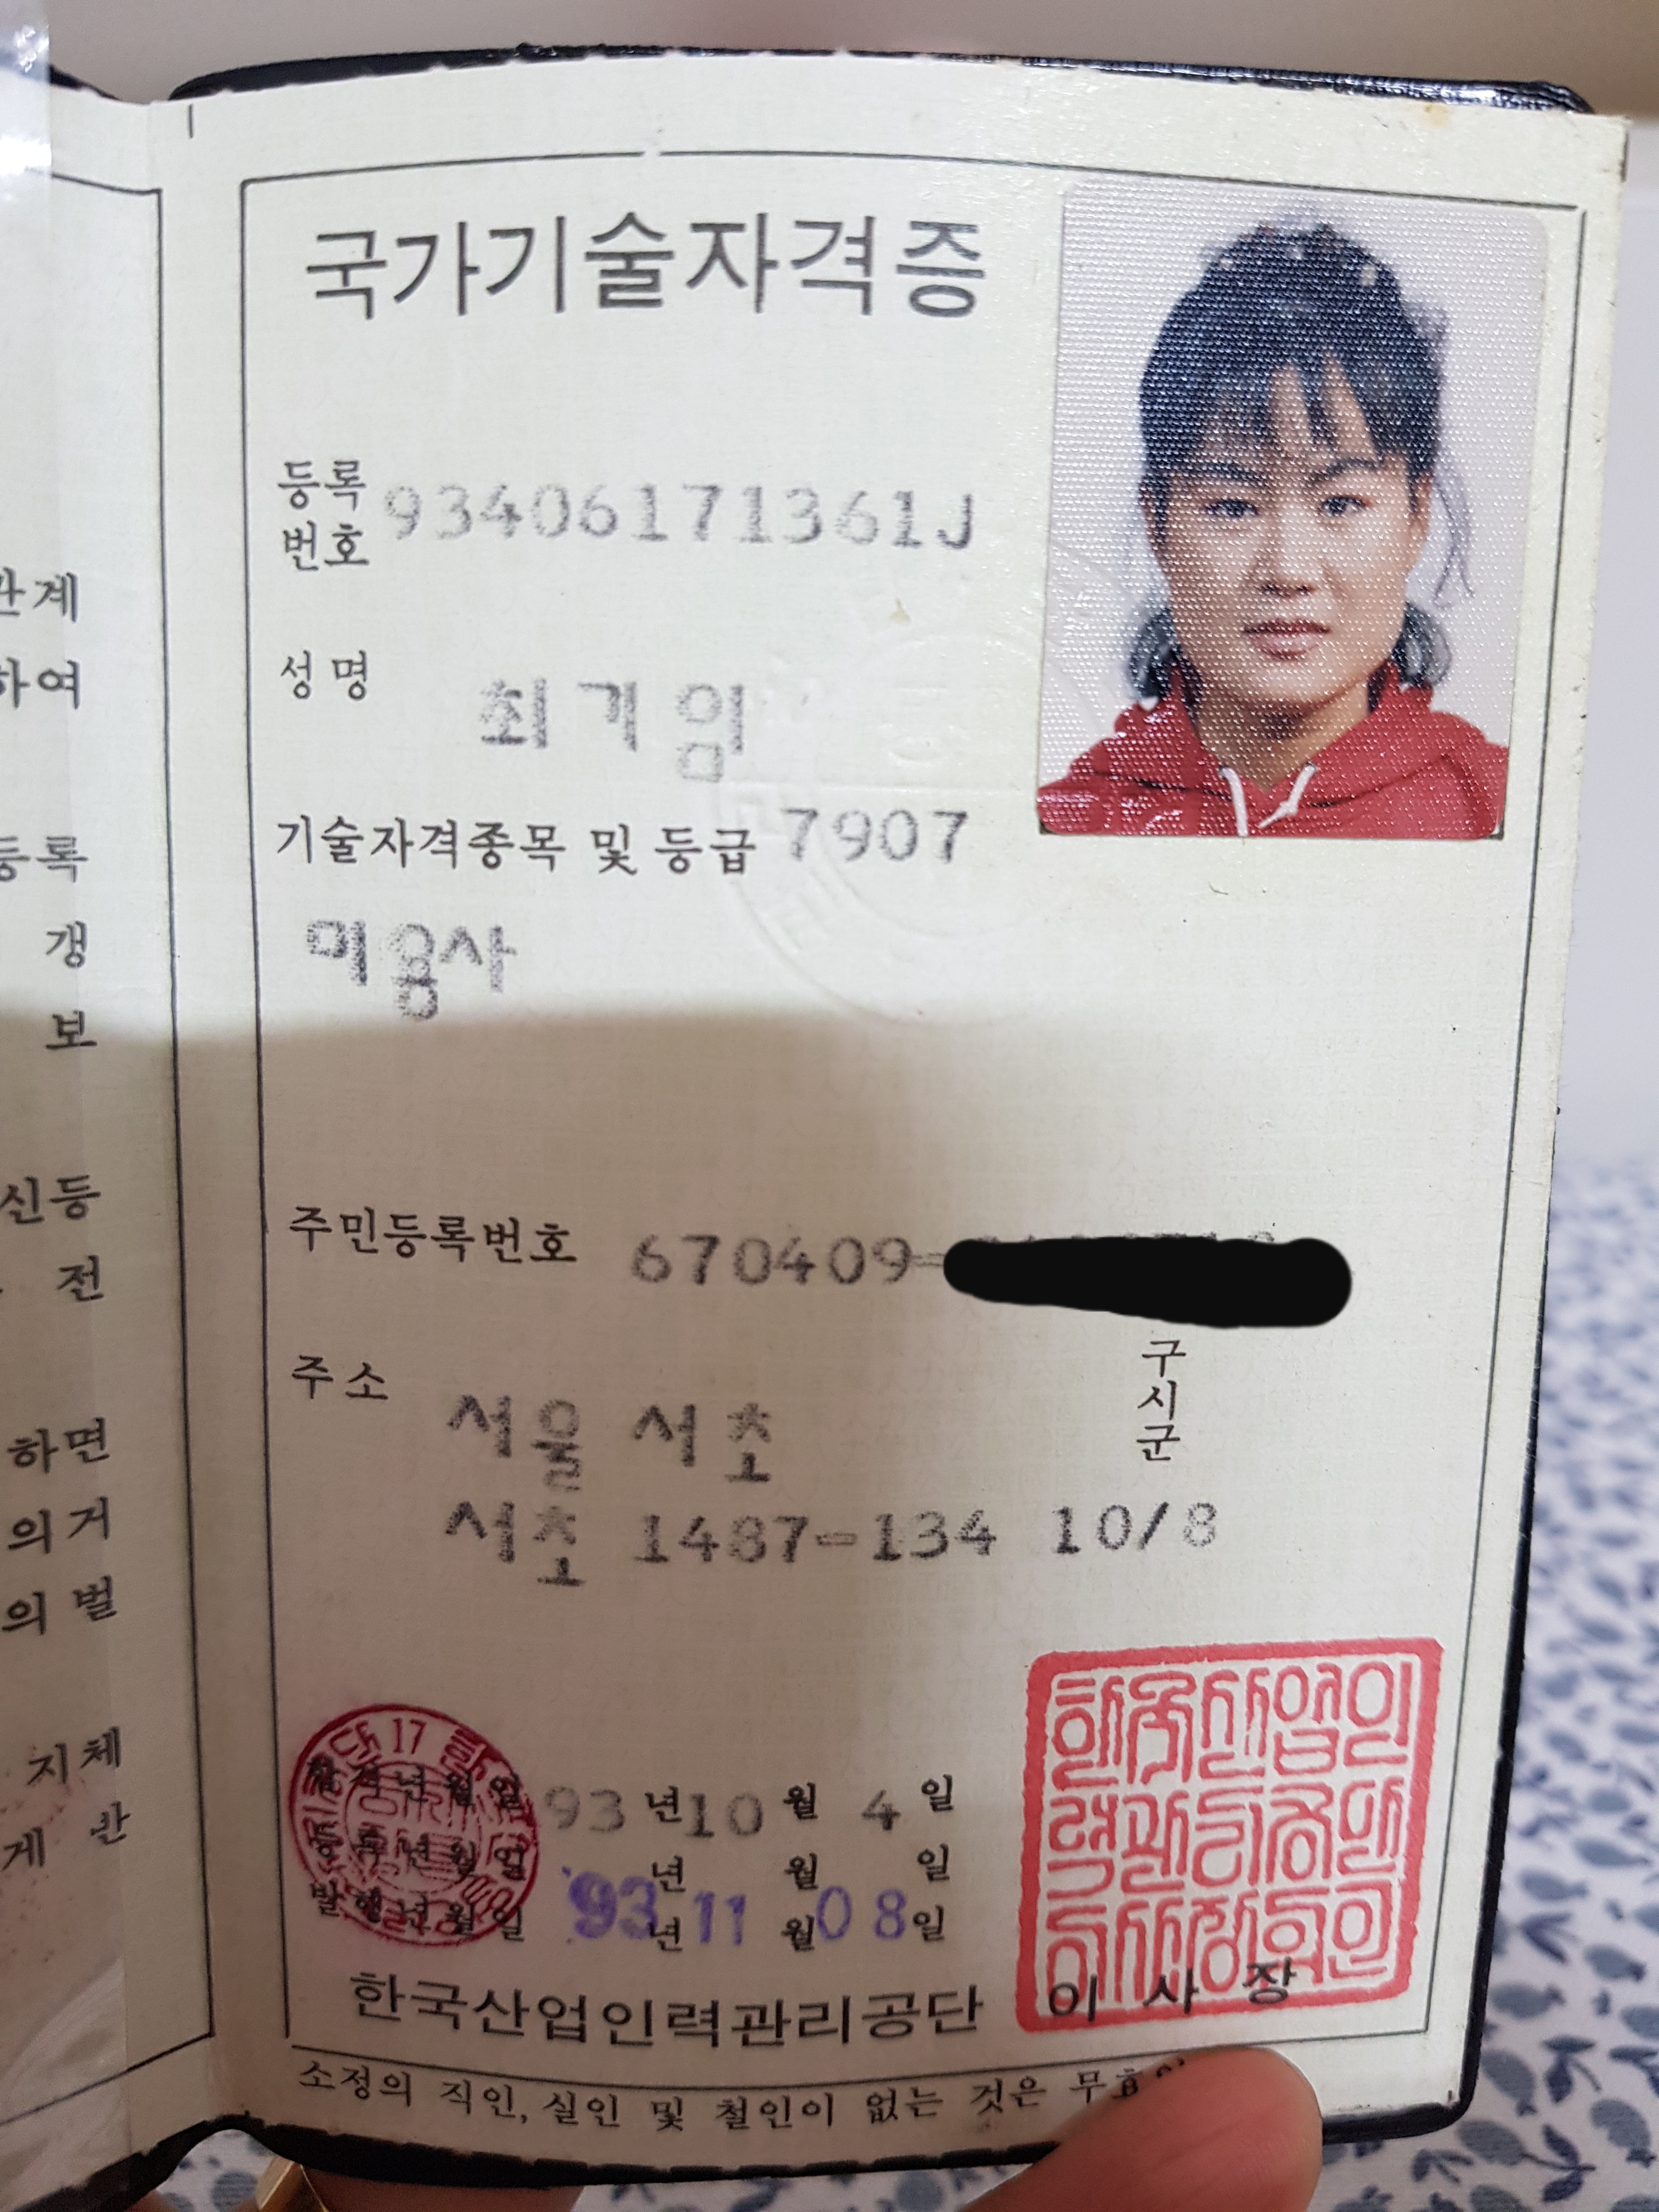 국가기술자격증
등록번호 93406171361J
성명 최기임
기술자격종목 및 등급 7907
미용사
주민등록번호 670409-
주소 서울 서초 구시군
서초 1487-134 10/8
93년 10월 4일
등록년월일 년 월 일
발행년월일 '93년 11월 08일
한국산업인력관리공단 이사장
소정의 직인, 실인 및 철인이 없는 것은 무효
관계
하여
등록
갱
보
신등
전
하면
의거
의벌
지체
게 반